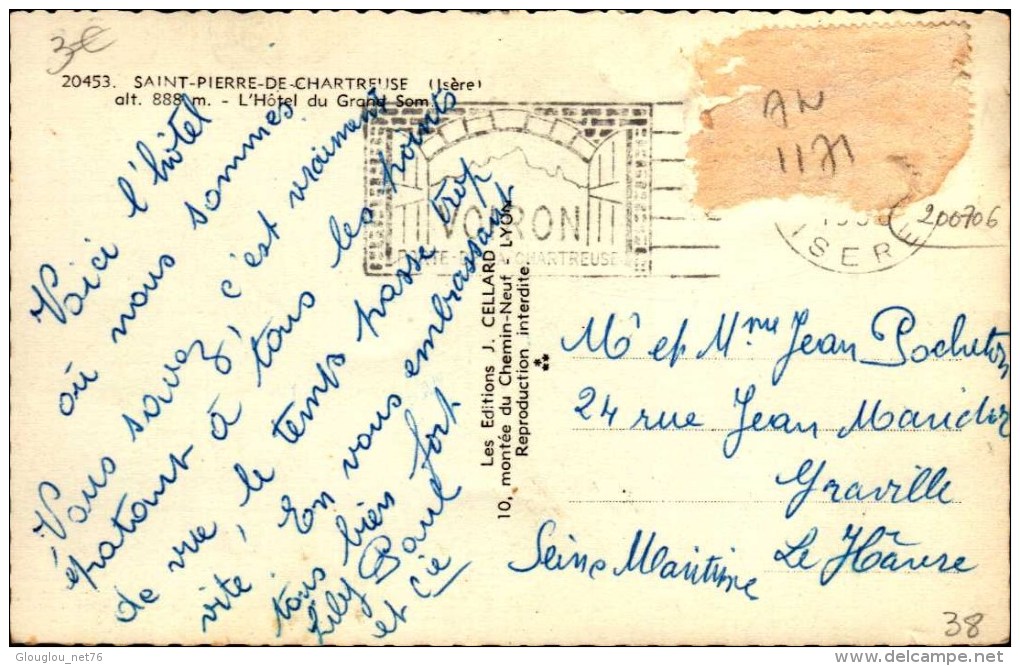 3€
20453. SAINT-PIERRE-DE-CHARTREUSE (Isère)
alt. 888 m. - L'Hôtel du Grand Som.
Voici l'hôtel
où nous sommes.
Vous savez, c'est vraiment
épatant à tous les points
de vue, le temps passe trop
vite! En vous embrassant
tous bien fort
Lily Paul
et Cie
VOIRON
PORTE DE LA CHARTREUSE
ISERE
AN
1171
200706
Les Editions J. CELLARD, LYON
10, montée du Chemin-Neuf
Reproduction interdite.
Mr et Mme Jean Pocheton
24 rue Jean
Graville
Le Hâvre
Seine Maritime
38
Glouglou_net76
delcampe.net